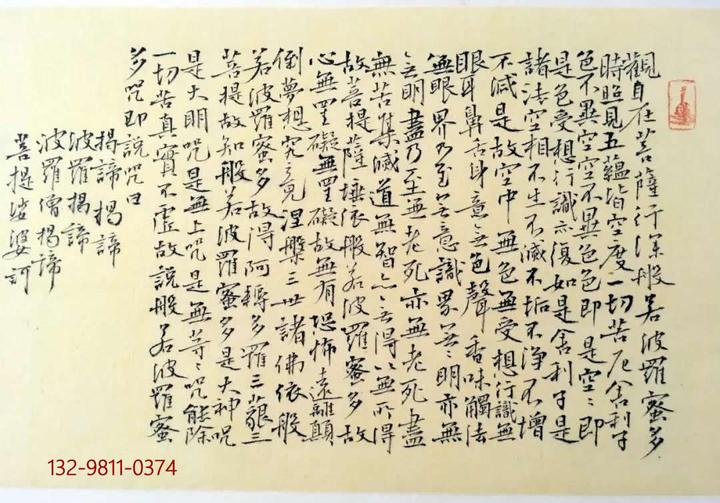 觀自在菩薩行深般若波羅蜜多
時照見五蘊皆空度一切苦厄舍利子
色不異空空不異色色即是空〻即
是色受想行識亦復如是舍利子是
諸法空相不生不滅不垢不淨不增
不減是故空中無色無受想行識無
眼耳鼻舌身意無色聲香味觸法
無眼界乃至無意識界無〻明亦無
無明盡乃至無老死亦無老死盡
無苦集滅道無智亦無得以無所得
故菩提薩埵依般若波羅蜜多故
心無罣礙無罣礙故無有恐怖遠離顛
倒夢想究竟涅槃三世諸佛依般
若波羅蜜多故得阿耨多羅三藐三
菩提故知般若波羅蜜多是大神咒
是大明咒是無上咒是無等〻咒能除
一切苦真實不虛故說般若波羅蜜
多咒即說咒曰
揭諦揭諦
波羅揭諦
波羅僧揭諦
菩提娑婆訶
132-9811-0374